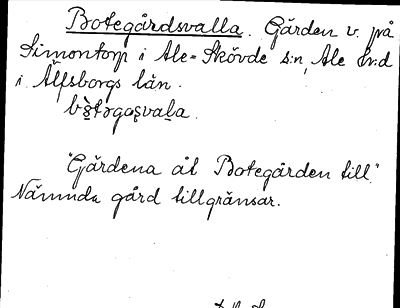 Botegårdsvalla. Gården v. på
Simontorp i Ale-Skövde s:n, Ale hr:d
i Älfsborgs län.
"Gårdena åt Botegården till."
Nämnda gård tillgränsar.